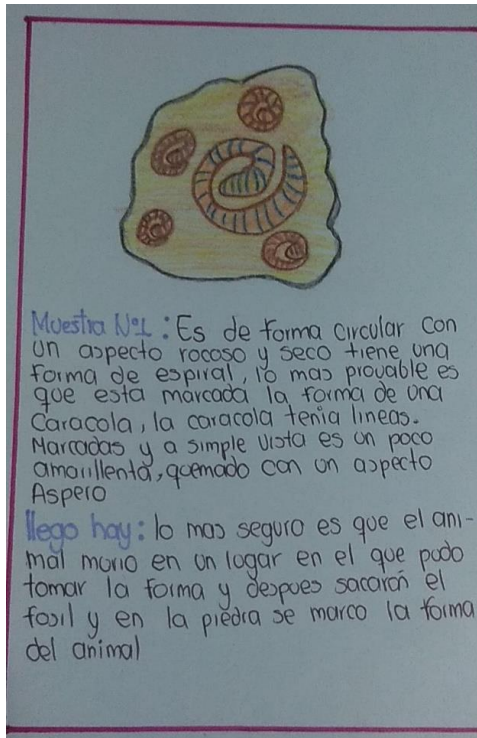 Muestra Nº1: Es de forma circular con
un aspecto rocoso y seco tiene una
forma de espiral, lo mas provable es
que esta marcada la forma de una
Caracola, la caracola tenia lineas.
Marcadas y a simple vista es un poco
amarillenta, quemado con un aspecto
Aspero
llego hay: lo mas seguro es que el ani-
mal murio en un lugar en el que pudo
tomar la forma y despues sacarón el
fosil y en la piedra se marco la forma
del animal